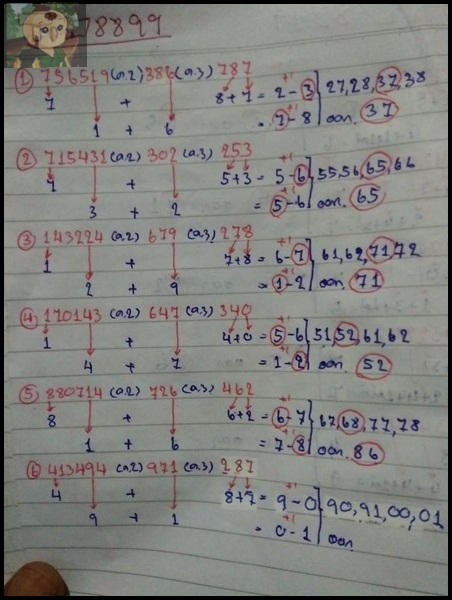 78899
① 756519 (a.2) 386 (a.3) 787
7 8+7 = 2-3 27,28,37,38
1 + 6 = 7-8 ออก. 37
② 715431 (a.2) 302 (a.3) 253
7 5+3 = 5-6 55,56,65,66
3 + 2 = 5-6 ออก. 65
③ 143224 (a.2) 679 (a.3) 278
1 7+8 = 6-7 61,62,71,72
2 + 9 = 1-2 ออก. 71
④ 170143 (a.2) 647 (a.3) 340
1 4+0 = 5-6 51,52,61,62
4 + 7 = 1-2 ออก. 52
⑤ 880714 (a.2) 726 (a.3) 462
8 6+2 = 6-7 67,68,77,78
1 + 6 = 7-8 ออก. 86
⑥ 413494 (a.2) 971 (a.3) 287
4 8+7 = 9-0 90,91,00,01
9 + 1 = 0-1 ออก.